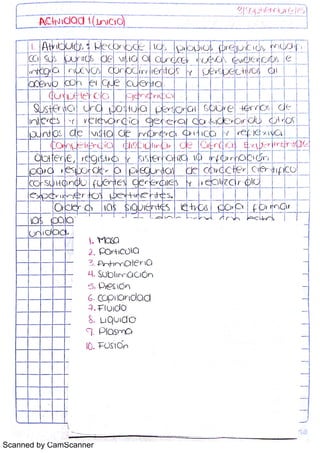 Actividad 1 (unidad)
1. Atributos: Reconoce los propios prejuicios, modifi-
ca sus puntos de vista al conocer nuevas evidencias e
integra nuevos conocimientos y perspectivas al
acervo con el que cuenta
Competencia genérica:
Sustenta una postura personal sobre temas de
interés y relevancia general considerando otros
puntos de vista de manera crítica y reflexiva.
Competencia disciplinar de Ciencias Experimentales
Obtiene, registra y sistematiza la información
para responder a preguntas de carácter científico
consultando fuentes generales y realizando
experimentos pertinentes.
Ordena las siguientes letras para formar
las pala
unidad.
1. Masa
2. Partícula
3. Antimateria
4. Sublimación
5. Presión
6. Capilaridad
7. Fluido
8. Líquido
9. Plasma
10. Fusión
Scanned by CamScanner